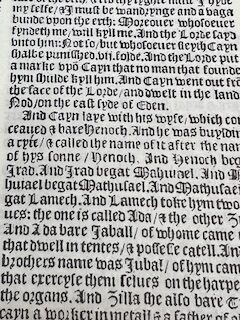 my ſeſſe, & J muſt be wandrynge and a vaga
bunde vpon the erth: Morzever whoſoever
fyndeth me, will kyll me. And the Lorde ſayd
vnto him: Not ſo, but whoſoever ſleyth Cayn
ſhalbe punyſſhed .vij. folde. And the Lorde put
a marke vpō Cayn that no man that founde
hym ſhulde kyll him. And Cayn went out frō
the face of the Lorde, and dwelt in the land
Nod, on the eaſt ſyde of Eden.
And Cayn laye with his wyfe, which con
ceaued & bare Henoch. And he was buyldin
a cyte, & called the name of it after the name
of hys ſonne, Henoch. And Henoch beg
Jrad. And Jrad begat Mahuiael. And M
huiael begat Mathuſael. And Mathuſael
gat Lamech. And Lamech toke hym two
ues: the one is called Ada, & the other Z
And Ada bare Jaball, of whome came
that dwell in tentes, & poſſeſſe catell. An
brothers name was Jubal, of hym cam
that exercyſe them ſelues on the harpe
the organs. And Zilla ſhe alſo bare T
cayn a worker in metall & a father of al